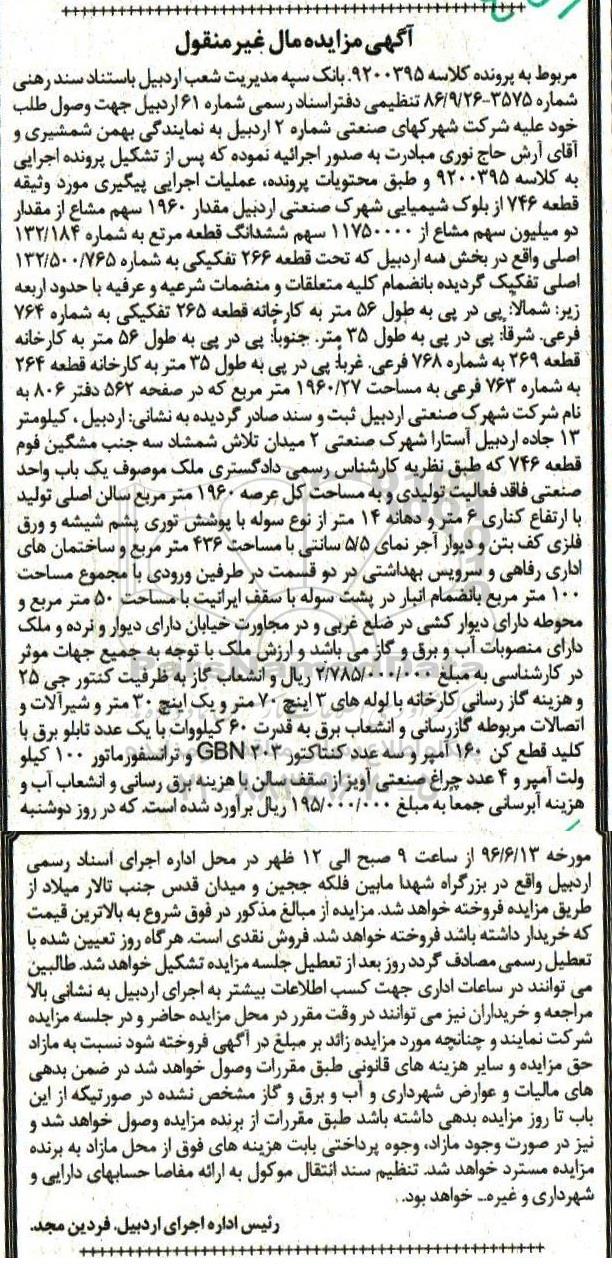 آگهی مزایده مال غیر منقول
مربوط به پرونده کلاسه ۹۲۰۰۳۹۵. بانک سپه مدیریت شعب اردبیل باستناد سند رهنی
شماره ۳۵۷۵-۸۶/۹/۲۶ تنظیمی دفتراسناد رسمی شماره ۶۱ اردبیل جهت وصول طلب
خود علیه شرکت شهرکهای صنعتی شماره ۲ اردبیل به نمایندگی بهمن شمشیری و
آقای آرش حاج نوری مبادرت به صدور اجرائیه نموده که پس از تشکیل پرونده اجرایی
به کلاسه ۹۲۰۰۳۹۵ و طبق محتویات پرونده، عملیات اجرایی پیگیری مورد وثیقه
قطعه ۷۴۶ از بلوک شیمیایی شهرک صنعتی اردبیل مقدار ۱۹۶۰ سهم مشاع از مقدار
دو میلیون سهم مشاع از ۱۱۷۵۰۰۰۰ سهم ششدانگ قطعه مرتع به شماره ۱۳۲/۱۸۴
اصلی واقع در بخش سه اردبیل که تحت قطعه ۲۶۶ تفکیکی به شماره ۱۳۲/۵۰۰/۷۶۵
اصلی تفکیک گردیده بانضمام کلیه متعلقات و منضمات شرعیه و عرفیه با حدود اربعه
زیر: شمالاً: پی در پی به طول ۵۶ متر به کارخانه قطعه ۲۶۵ تفکیکی به شماره ۷۶۴
فرعی. شرقاً: پی در پی به طول ۳۵ متر. جنوباً: پی در پی به طول ۵۶ متر به کارخانه
قطعه ۲۶۹ به شماره ۷۶۸ فرعی. غرباً: پی در پی به طول ۳۵ متر به کارخانه قطعه ۲۶۴
به شماره ۷۶۳ فرعی به مساحت ۱۹۶۰/۲۷ متر مربع که در صفحه ۵۶۲ دفتر ۸۰۶ به
نام شرکت شهرک صنعتی اردبیل ثبت و سند صادر گردیده به نشانی: اردبیل ، کیلومتر
۱۳ جاده اردبیل آستارا شهرک صنعتی ۲ میدان تلاش شمشاد سه جنب مشگین فوم
قطعه ۷۴۶ که طبق نظریه کارشناس رسمی دادگستری ملک موصوف یک باب واحد
صنعتی فاقد فعالیت تولیدی و به مساحت کل عرصه ۱۹۶۰ متر مربع سالن اصلی تولید
با ارتفاع کناری ۶ متر و دهانه ۱۴ متر از نوع سوله با پوشش توری پشم شیشه و ورق
فلزی کف بتن و دیوار آجر نمای ۵/۵ سانتی با مساحت ۴۳۶ متر مربع و ساختمان های
اداری رفاهی و سرویس بهداشتی در دو قسمت در طرفین ورودی با مجموع مساحت
۱۰۰ متر مربع بانضمام انبار در پشت سوله با سقف ایرانیت با مساحت ۵۰ متر مربع و
محوطه دارای دیوار کشی در ضلع غربی و در مجاورت خیابان دارای دیوار و نرده و ملک
دارای منصوبات آب و برق و گاز می باشد و ارزش ملک با توجه به جمیع جهات موثر
در کارشناسی به مبلغ ۲/۷۸۵/۰۰۰/۰۰۰ ریال و انشعاب گاز به ظرفیت کنتور جی ۲۵
و هزینه گاز رسانی کارخانه با لوله های ۳ اینچ ۷۰ متر و یک اینچ ۳۰ متر و شیرآلات و
اتصالات مربوطه گازرسانی و انشعاب برق به قدرت ۶۰ کیلووات با یک عدد تابلو برق با
کلید قطع کن ۱۶۰ آمپر و سه عدد کنتاکتور GBN ۲۰۳ و ترانسفورماتور ۱۰۰ کیلو
ولت آمپر و ۴ عدد چراغ صنعتی آویز از سقف سالن با هزینه برق رسانی و انشعاب آب و
هزینه آبرسانی جمعاً به مبلغ ۱۹۵/۰۰۰/۰۰۰ ریال برآورد شده است. که در روز دوشنبه
مورخه ۹۶/۶/۱۳ از ساعت ۹ صبح الی ۱۲ ظهر در محل اداره اجرای اسناد رسمی
اردبیل واقع در بزرگراه شهدا مابین فلکه ججین و میدان قدس جنب تالار میلاد از
طریق مزایده فروخته خواهد شد. مزایده از مبالغ مذکور در فوق شروع به بالاترین قیمت
که خریدار داشته باشد فروخته خواهد شد. فروش نقدی است. هرگاه روز تعیین شده با
تعطیل رسمی مصادف گردد روز بعد از تعطیل جلسه مزایده تشکیل خواهد شد. طالبین
می توانند در ساعات اداری جهت کسب اطلاعات بیشتر به اجرای اردبیل به نشانی بالا
مراجعه و خریداران نیز می توانند در وقت مقرر در محل مزایده حاضر و در جلسه مزایده
شرکت نمایند و چنانچه مورد مزایده زائد بر مبلغ در آگهی فروخته شود نسبت به مازاد
حق مزایده و سایر هزینه های قانونی طبق مقررات وصول خواهد شد در ضمن بدهی
های مالیات و عوارض شهرداری و آب و برق و گاز مشخص نشده در صورتیکه از این
باب تا روز مزایده بدهی داشته باشد طبق مقررات از برنده مزایده وصول خواهد شد و
نیز در صورت وجود مازاد، وجوه پرداختی بابت هزینه های فوق از محل مازاد به برنده
مزایده مسترد خواهد شد. تنظیم سند انتقال موکول به ارائه مفاصا حسابهای دارایی و
شهرداری و غیره... خواهد بود.
رئیس اداره اجرای اردبیل. فردین مجد.